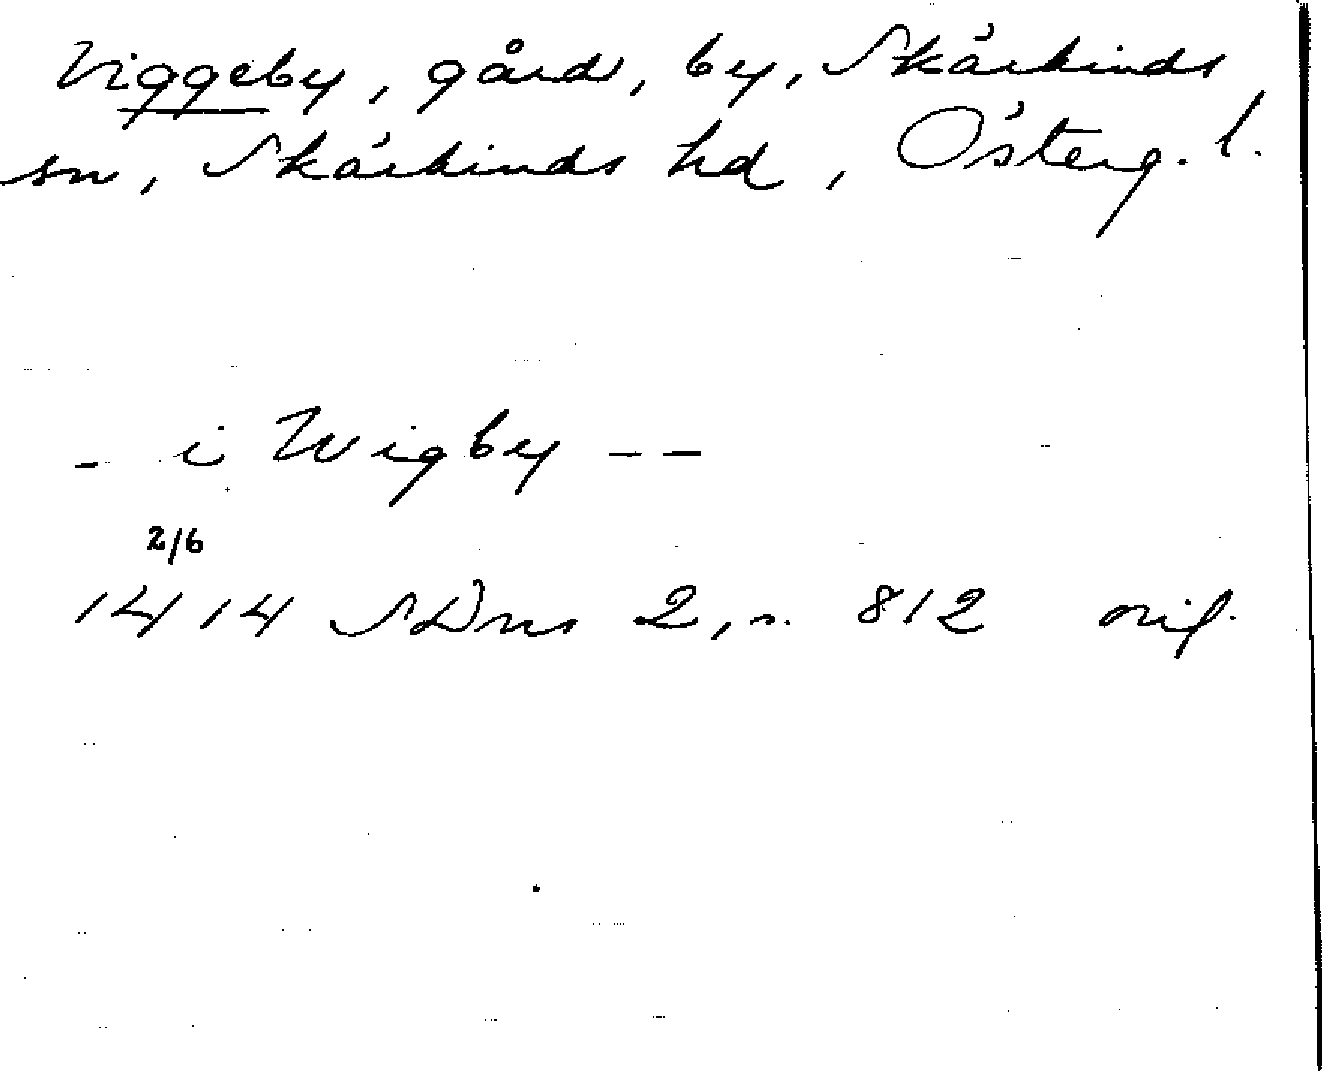 Viggeby, gård, by, Skärkinds
sn, Skärkinds hd, Österg. l.
- i Wigby - -
2/6
1414 SDns 2, s. 812 orig.